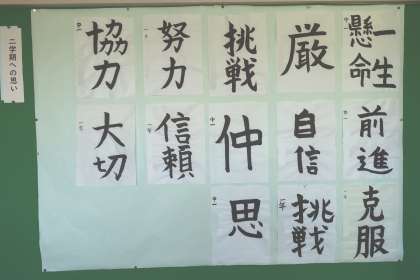 二学期への思い
一生
懸命
厳
挑戦
努力
協力
前進
自信
仲
信頼
大切
克服
挑戦
思